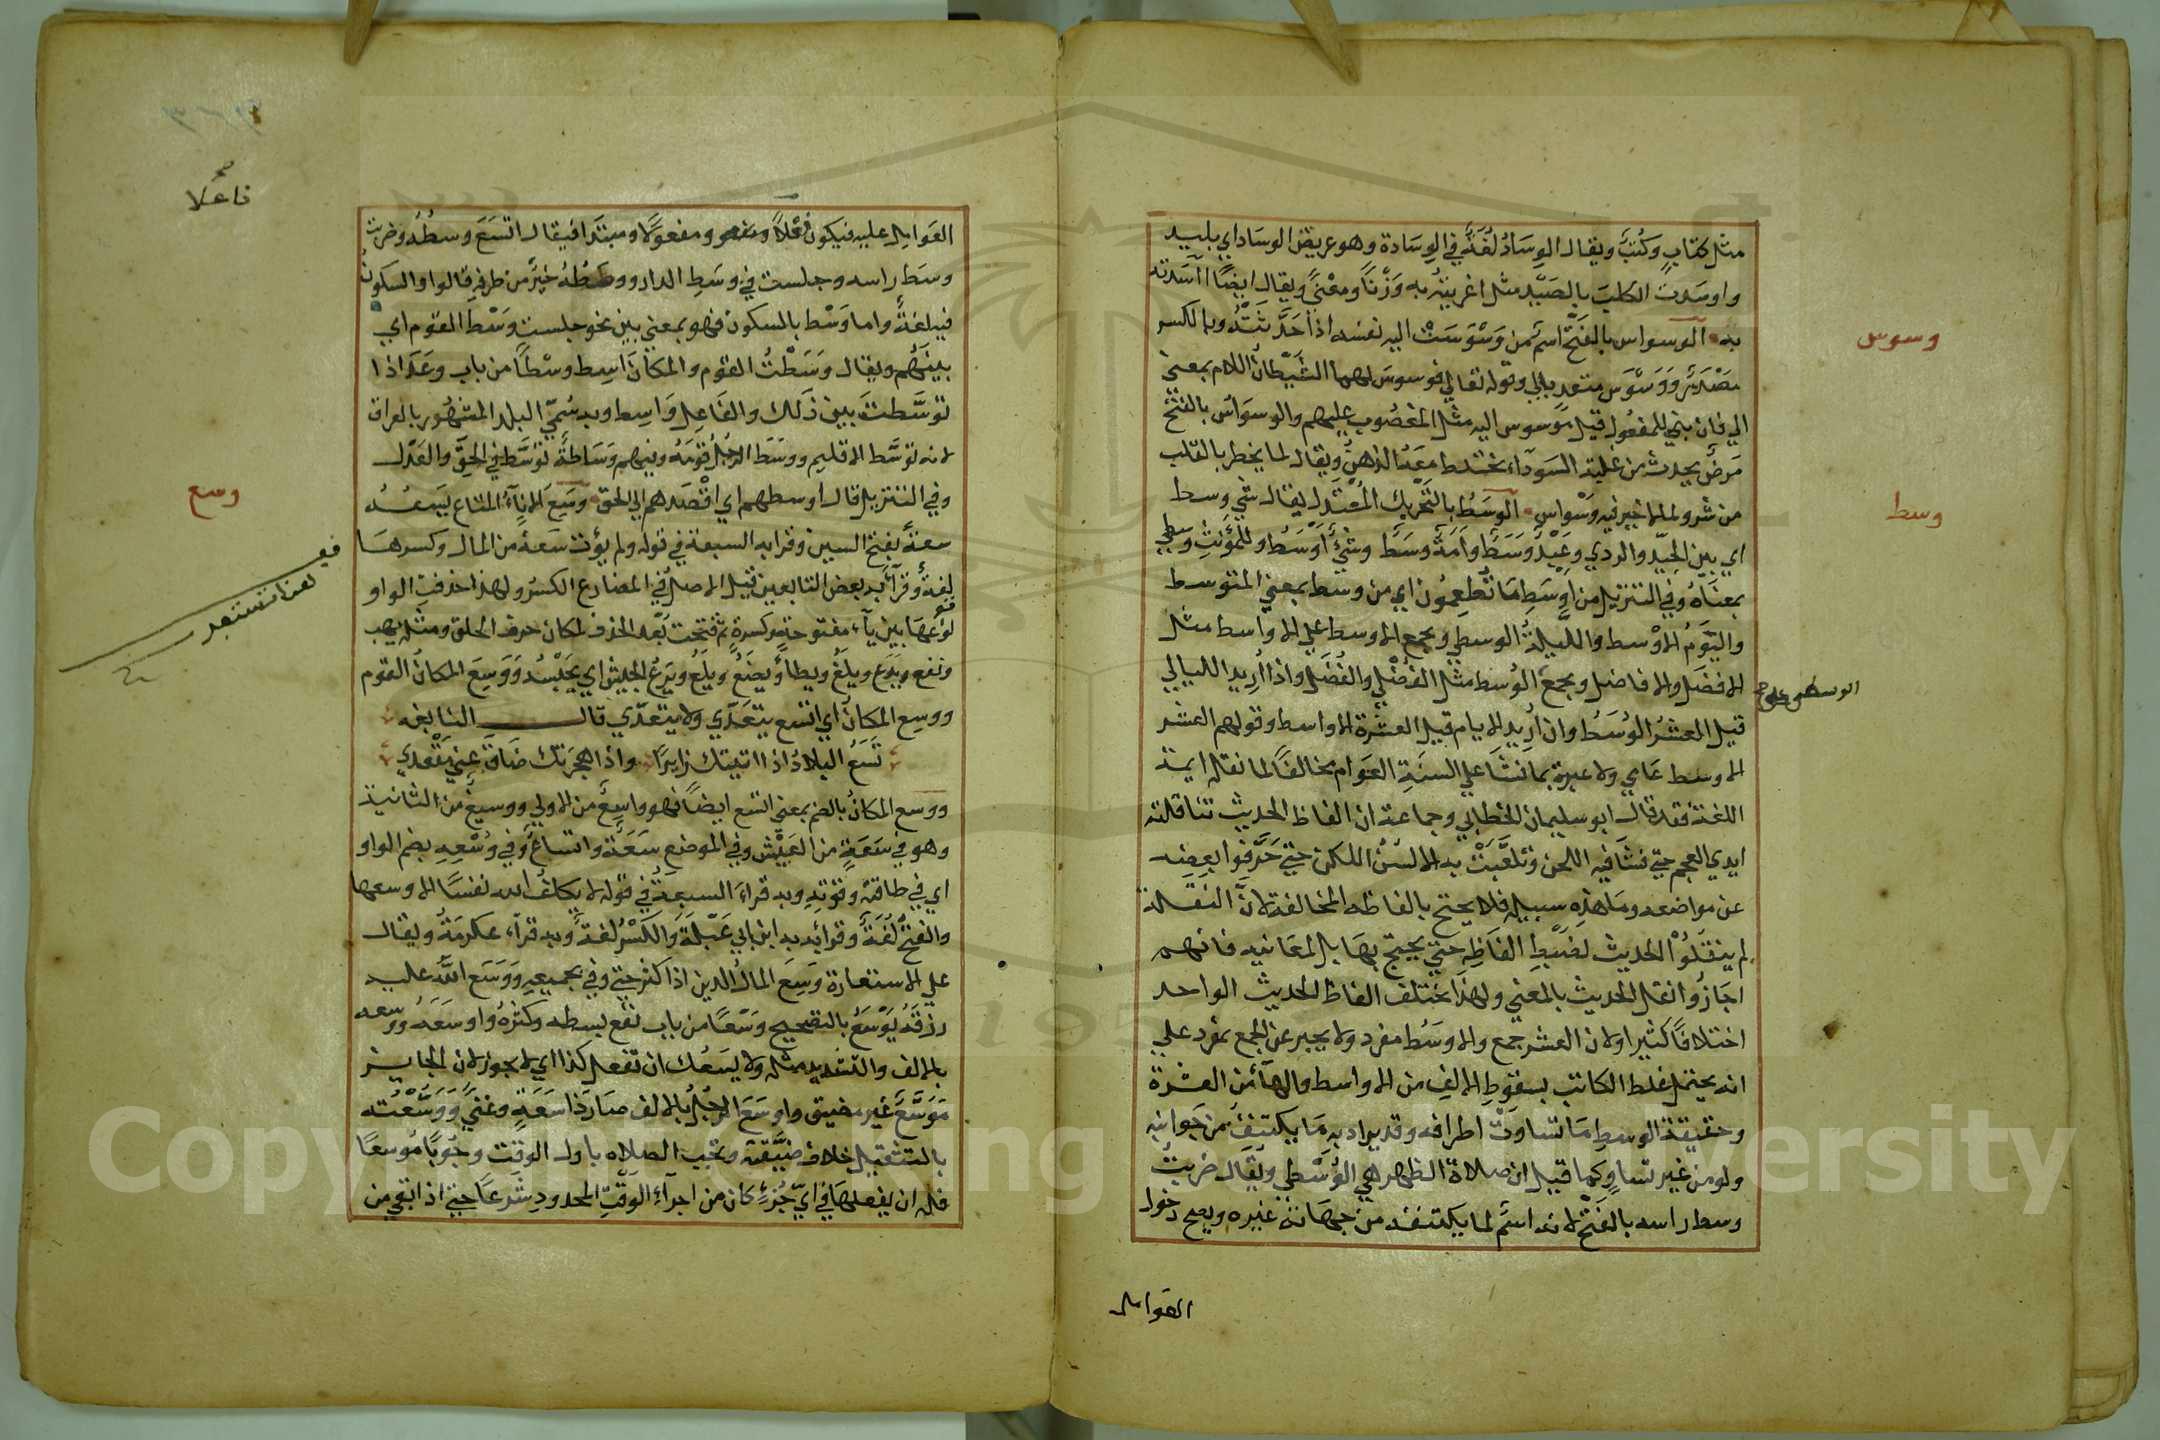 مثل كتاب وكتب ويقال الوساد لغة في الوسادة وهو عريض الوساد اي بليد
واوسدت الكلب بالصيد مثل اغريته به وزنا ومعنى ويقال ايضا آسدته
به الوسواس بالفتح اسم من وسوست اليه نفسه اذا حدثته وبالكسر
مصدر ووسوس متعد بالي وقوله تعالي فوسوس لهما الشيطان اللام بمعني
الي فان بني للمفعول قيل موسوس اليه مثل المغضوب عليهم والوسواس بالفتح
مرض يحدث من غلبة السوداء يختلط معه الذهن ويقال لما يخطر بالقلب
من شر ولما لا خير فيه وسواس الوسط بالتحريك المعتدل يقال شي وسط
اي بين الجيد والردي وعبد وسط وامة وسط وشئ اوسط وللمؤنث وسطي
بمعناه وفي التنزيل من اوسط ما تطعمون اي من وسط بمعني المتوسط
واليوم الاوسط والليلة الوسطي ويجمع الاوسط علي الاواسط مثل
الافضل والافاضل ويجمع الوسط مثل الفضلي والفضل واذا اريد الليالي
قيل العشر الوسط وان اريد الايام قيل العشرة الاواسط وقولهم العشر
الاوسط عامي ولا عبرة بما فشا علي السنة العوام مخالفا لما نقله ايمة
اللغة فقد قال ابو سليمان الخطابي وجماعة ان الفاظ الحديث تناقلته
ايدي العجم حتي فشا فيه اللحن وتلعبت به الالسن اللكن حتي حرفوا بعضه
عن مواضعه وما هذه سبيله فلا يحتج بالفاظه المخالفة لان النقلة
لم ينقلوا الحديث لضبط الفاظه حتي يحتج بها بل لمعانيه فانهم
اجازوا نقل الحديث بالمعني ولهذا تختلف الفاظ الحديث الواحد
اختلافا كثيرا ولان العشر جمع والاوسط مفرد ولا يخبر عن الجمع بمفرد علي
انه يحتمل غلط الكاتب بسقوط الالف من الاواسط والهاء من العشرة
وحقيقة الوسط ما تساوت اطرافه وقد يراد به ما يكتنف من جوانبه
ولو من غير تساو كما قيل ان صلاة الظهر هي الوسطي ويقال ضربت
وسط راسه بالفتح لانه اسم لما يكتنفه من جهاته غيره ويصح دخول
العوامل
وسوس
وسط
العوامل عليه فيكون فاعلا ومفعولا ومبتدا فيقال اتسع وسطه وضربت
وسط راسه وجلست في وسط الدار ووسطه خير من طرفه قالوا والسكون
فيه لغة واما وسط بالسكون فهو بمعني بين نحو جلست وسط القوم اي
بينهم ويقال وسطت القوم والمكان اسط وسطا من باب وعد اذا
توسطت بين ذلك والفاعل واسط وبه سمي البلد المشهور بالعراق
لانه توسط الاقليم ووسط الرجل قومه وفيهم وساطة توسط في الحق والعدل
وفي التنزيل قال اوسطهم اي اقصدهم الي الحق وسع الاناء المتاع يسعه
سعة بفتح السين وقرا به السبعة في قوله ولم يؤت سعة من المال وكسرها
لغة وقرا به بعض التابعين قيل الاصل في المضارع الكسر ولهذا حذفت الواو
لوقوعها بين ياء مفتوحة وكسرة ثم فتحت بعد الحذف لمكان حرف الحلق ومثله يهب
ويقع ويدع ويلغ ويطا ويضع ويلع ويزع الجيش اي يحبسه ووسع المكان القوم
ووسع المكان اي اتسع يتعدي ولا يتعدي قال النابغه
تسع البلاد اذا اتيتك زايرا واذا هجرتك ضاق عني مقعدي
ووسع المكان بالضم بمعني اتسع ايضا فهو واسع من الاولي ووسيع من الثانية
وهو في سعة من العيش وفي الموضع سعة واتساع وفي وسعه بضم الواو
اي في طاقته وقوته وبه قراء السبعة في قوله لا يكلف الله نفسا الا وسعها
والفتح لغة وقرا به ابن ابي عبلة والكسر لغة وبه قراء عكرمة ويقال
علي الاستعارة وسع المال الدين اذا كثر حتي وفي بجميعه ووسع الله عليه
رزقه يوسع بالتصحيح وسعا من باب نفع بسطه وكثره واوسعه ووسعه
بالالف والتشديد مثله ولا يسعك ان تفعل كذا اي لا يجوز لان الجايز
موسع غير مضيق واوسع الرجل بالالف صار ذا سعة وغني ووسعته
بالتثقيل خلاف ضيقته وتجب الصلاه باول الوقت وجوبا موسعا
فله ان يفعلها في اي جزء كان من اجزاء الوقت المحدود شرعا حتي اذا بقي من
فاعلا
وسع
Copyright © King Saud University